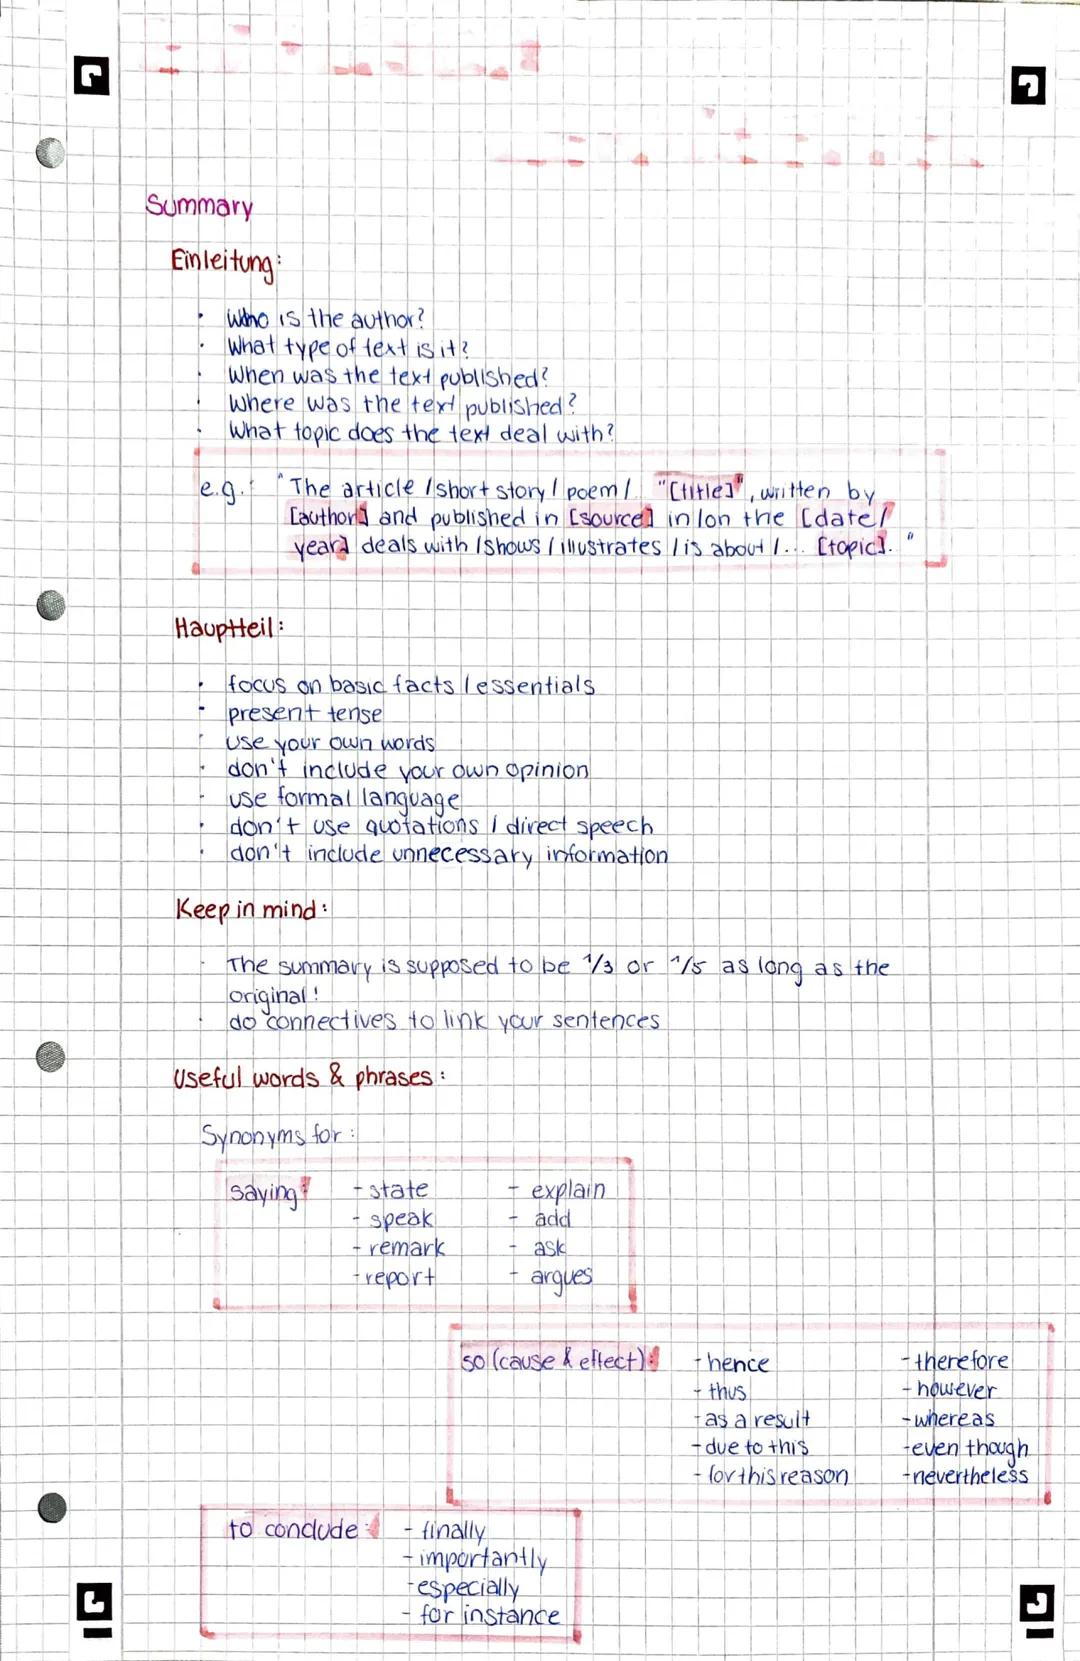 Summary
Einleitung:
• Who is the author?
• What type of text is it?
• When was the text published?
• Where was the text published?
• What topic does the text deal with?
e.g.: "The article / short story / poem / "[title]", written by
[author] and published in [source] in/on the [date/
year] deals with / shows / illustrates / is about / ... [topic]."
Hauptteil:
• focus on basic facts / essentials
• present tense
• use your own words
• don't include your own opinion
• use formal language
• don't use quotations / direct speech
• don't include unnecessary information
Keep in mind:
• The summary is supposed to be 1/3 or 1/5 as long as the
original!
• do connectives to link your sentences
Useful words & phrases:
Synonyms for:
saying: - state - explain
- speak - add
- remark - ask
- report - argues
so (cause & effect): - hence - therefore
- thus - however
- as a result - whereas
- due to this - even though
- for this reason - nevertheless
to conclude: - finally
- importantly
- especially
- for instance